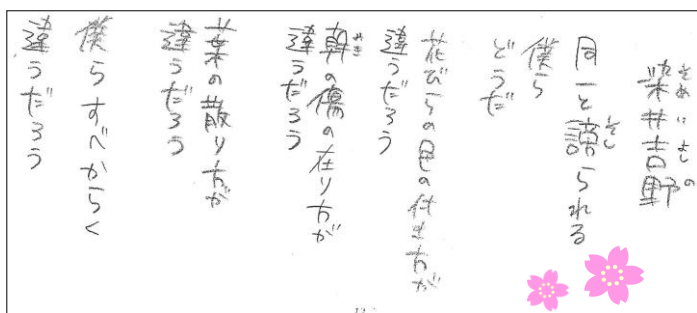 そめいよしの
染井吉野
そし
同一と謗られる
僕ら
どうだ
花びらの色の付き方が
違うだろう
みき
幹の傷の在り方が
違うだろう
葉の散り方が
違うだろう
僕らすべからく
違うだろう